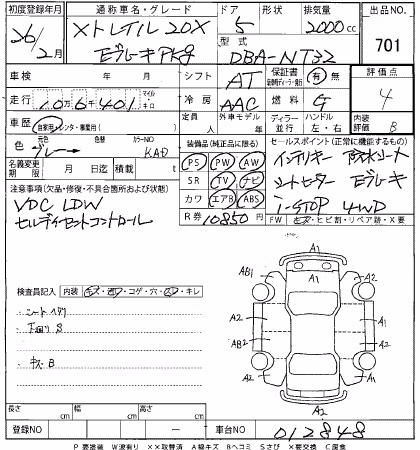 初度登録年月 通称車名・グレード ドア 形状 排気量 出品NO
26/2月 Xトレイル 20X 5 2000cc 701
エブレーキPkg 型式 DBA-NT32
車検 年 月 日 シフト AT 保証書 有・無 評価点 4
走行 10万6千401 マイル キロ 冷房 AAC 燃料 G
車歴 自家用・レンタ・事業用( ) 定員 人 外車モデル 年 ディーラー 並行 ハンドル 左・右 内装評価 B
色 元色 グレー 色替 カラーNO KAD 装備品(純正品に限る) セールスポイント(正常に機能するもの)
名義変更期限 月 日 積載 t PS PW AW インテリキー 防水シート
注意事項(欠品・修復・不具合箇所および状態) SR TV ナビ シートヒーター エブレーキ
VDC LDW カワ エアB ABS i-STOP 4WD
セルディセットコントロール R券 10850円 FW キズ・ヒビ割・リペア跡・X要
検査員記入 内装 キズ・汚レ・コゲ・穴・スレ・キレ
シートヘタリ
下廻りS
キズB
A1
AB1 A2
A2 A2
AB2 A2
A2 A1
A1
長さ cm 幅 cm 高さ cm
登録NO ー 車台NO 012848
P 要塗装 W波有り XX取替済 A線キズ Bヘコミ Sさび X要交換 C腐食